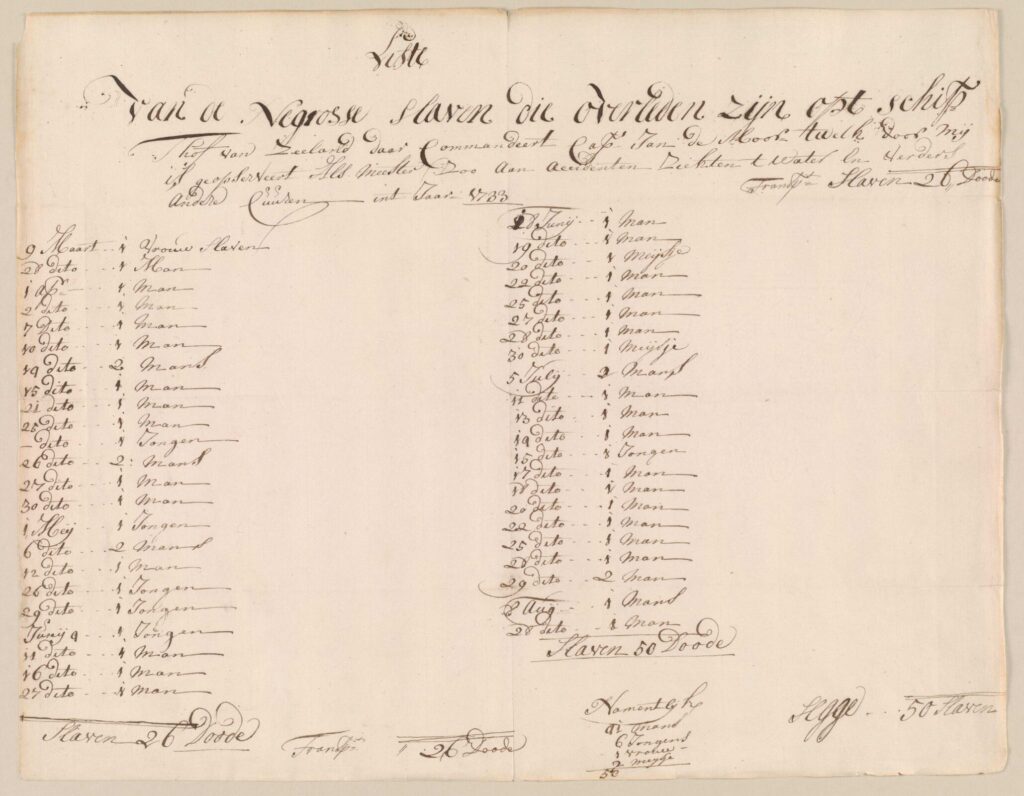 Liste
van de Negrosse Slaven die overleden zijn opt schip
T hof van Zeeland daar Commandeert Cap.n Jan de Moor twelk door mij
is geopserveert Als Meester, Zoo Aan Accidenten Ziekten t water En verders
Andere Cuuren int Jaar 1733
9 Maart 1 Vrouw Slaven
28 dito 1 Man
1 ap.r 1 Man
2 dito 1 Man
7 dito 1 Man
10 dito 1 Man
14 dito 2 Mans
15 dito 1 Man
21 dito 1 Man
25 dito 1 Man
- dito 1 Jongen
26 dito 2 Mans
27 dito 1 Man
30 dito 1 Man
1 Meij 1 Jongen
6 dito 2 Mans
12 dito 1 Man
26 dito 1 Jongen
29 dito 1 Jongen
Junij 9 1 Jongen
11 dito 1 Man
16 dito 1 Man
27 dito 1 Man
Slaven 26 Doode
Transp.t 26 Doode
Transp.t Slaven 26 Doode
18 Junij 1 Man
19 dito 1 Man
20 dito 1 Meijsje
22 dito 1 Man
25 dito 1 Man
27 dito 1 Man
28 dito 1 Man
30 dito 1 Meijsje
5 Julij 2 Mans
11 dito 1 Man
13 dito 1 Man
14 dito 1 Man
15 dito 1 Jongen
17 dito 1 Man
18 dito 1 Man
20 dito 1 Man
22 dito 1 Man
25 dito 1 Man
28 dito 1 Man
29 dito 2 Man
8 Aug 1 Mans
28 dito 1 Man
Slaven 50 Doode
Namentlijk
41 mans
6 Jongens
1 vrouw
2 meijsje
50
Segge 50 Slaven